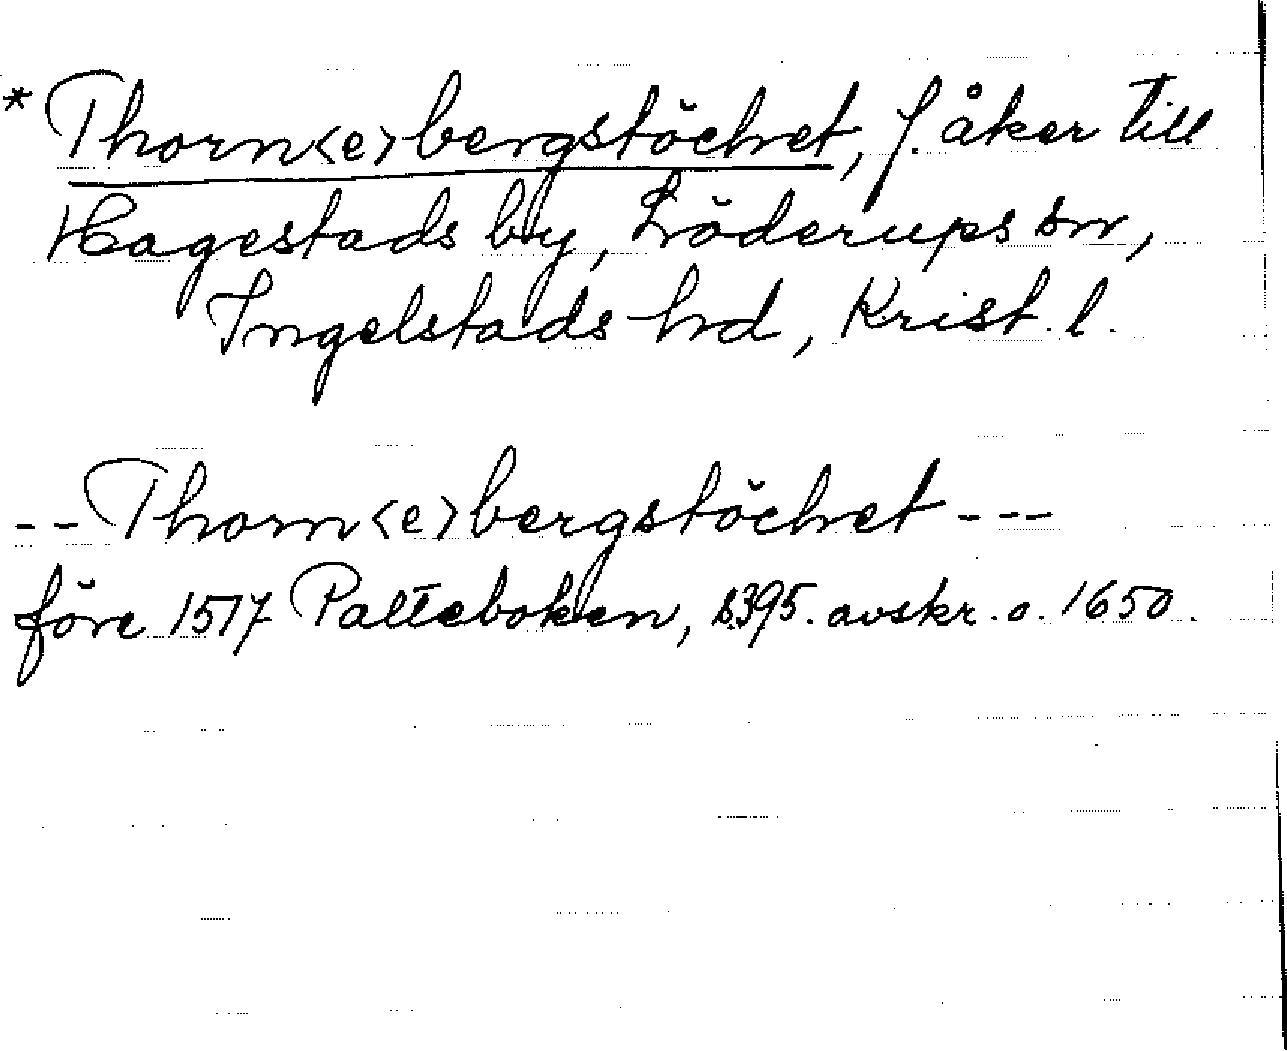 * Thorn<e>bergstöchet, f. åker till
Hagestads by, Löderups sn,
Ingelstads hd, Krist. l.
-- Thorn<e>bergstöchet ---
före 1517 Palteboken, s.395. avskr. o. 1650.